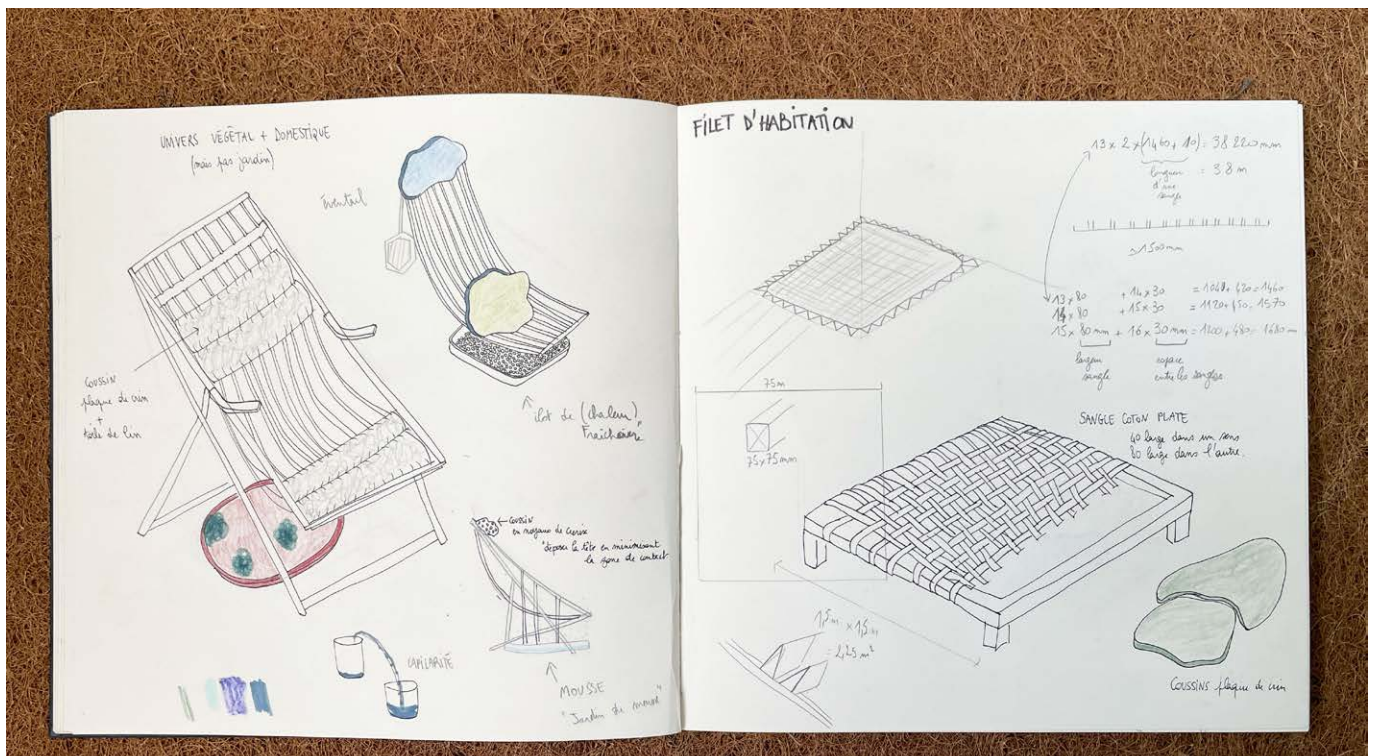 UNIVERS VÉGÉTAL + DOMESTIQUE
(mais pas jardin)
éventail
COUSSIN
plaque de crin
+
toile de lin
îlot de (chaleur)
Fraîcheur
COUSSIN
en noyaux de cerise
"déposer la tête en minimisant
la zone de contact
CAPILARITÉ
MOUSSE
"Jardin de mousse"
FILET D'HABITATION
13 x 2 x (1460 + 10) = 38 220 mm
longueur
d'une
sangle
= 3.8 m
~1500mm
13 x 80 + 14 x 30 = 1040 + 420 = 1460
14 x 80 + 15 x 30 = 1120 + 450 = 1570
15 x 80 mm + 16 x 30 mm = 1200 + 480 = 1680 m
largeur
sangle
espace
entre les sangles
75m
75x75mm
SANGLE COTON PLATE
40 large dans un sens
80 large dans l'autre.
1,5m x 1,5m
= 2,25 m²
COUSSINS plaque de crin